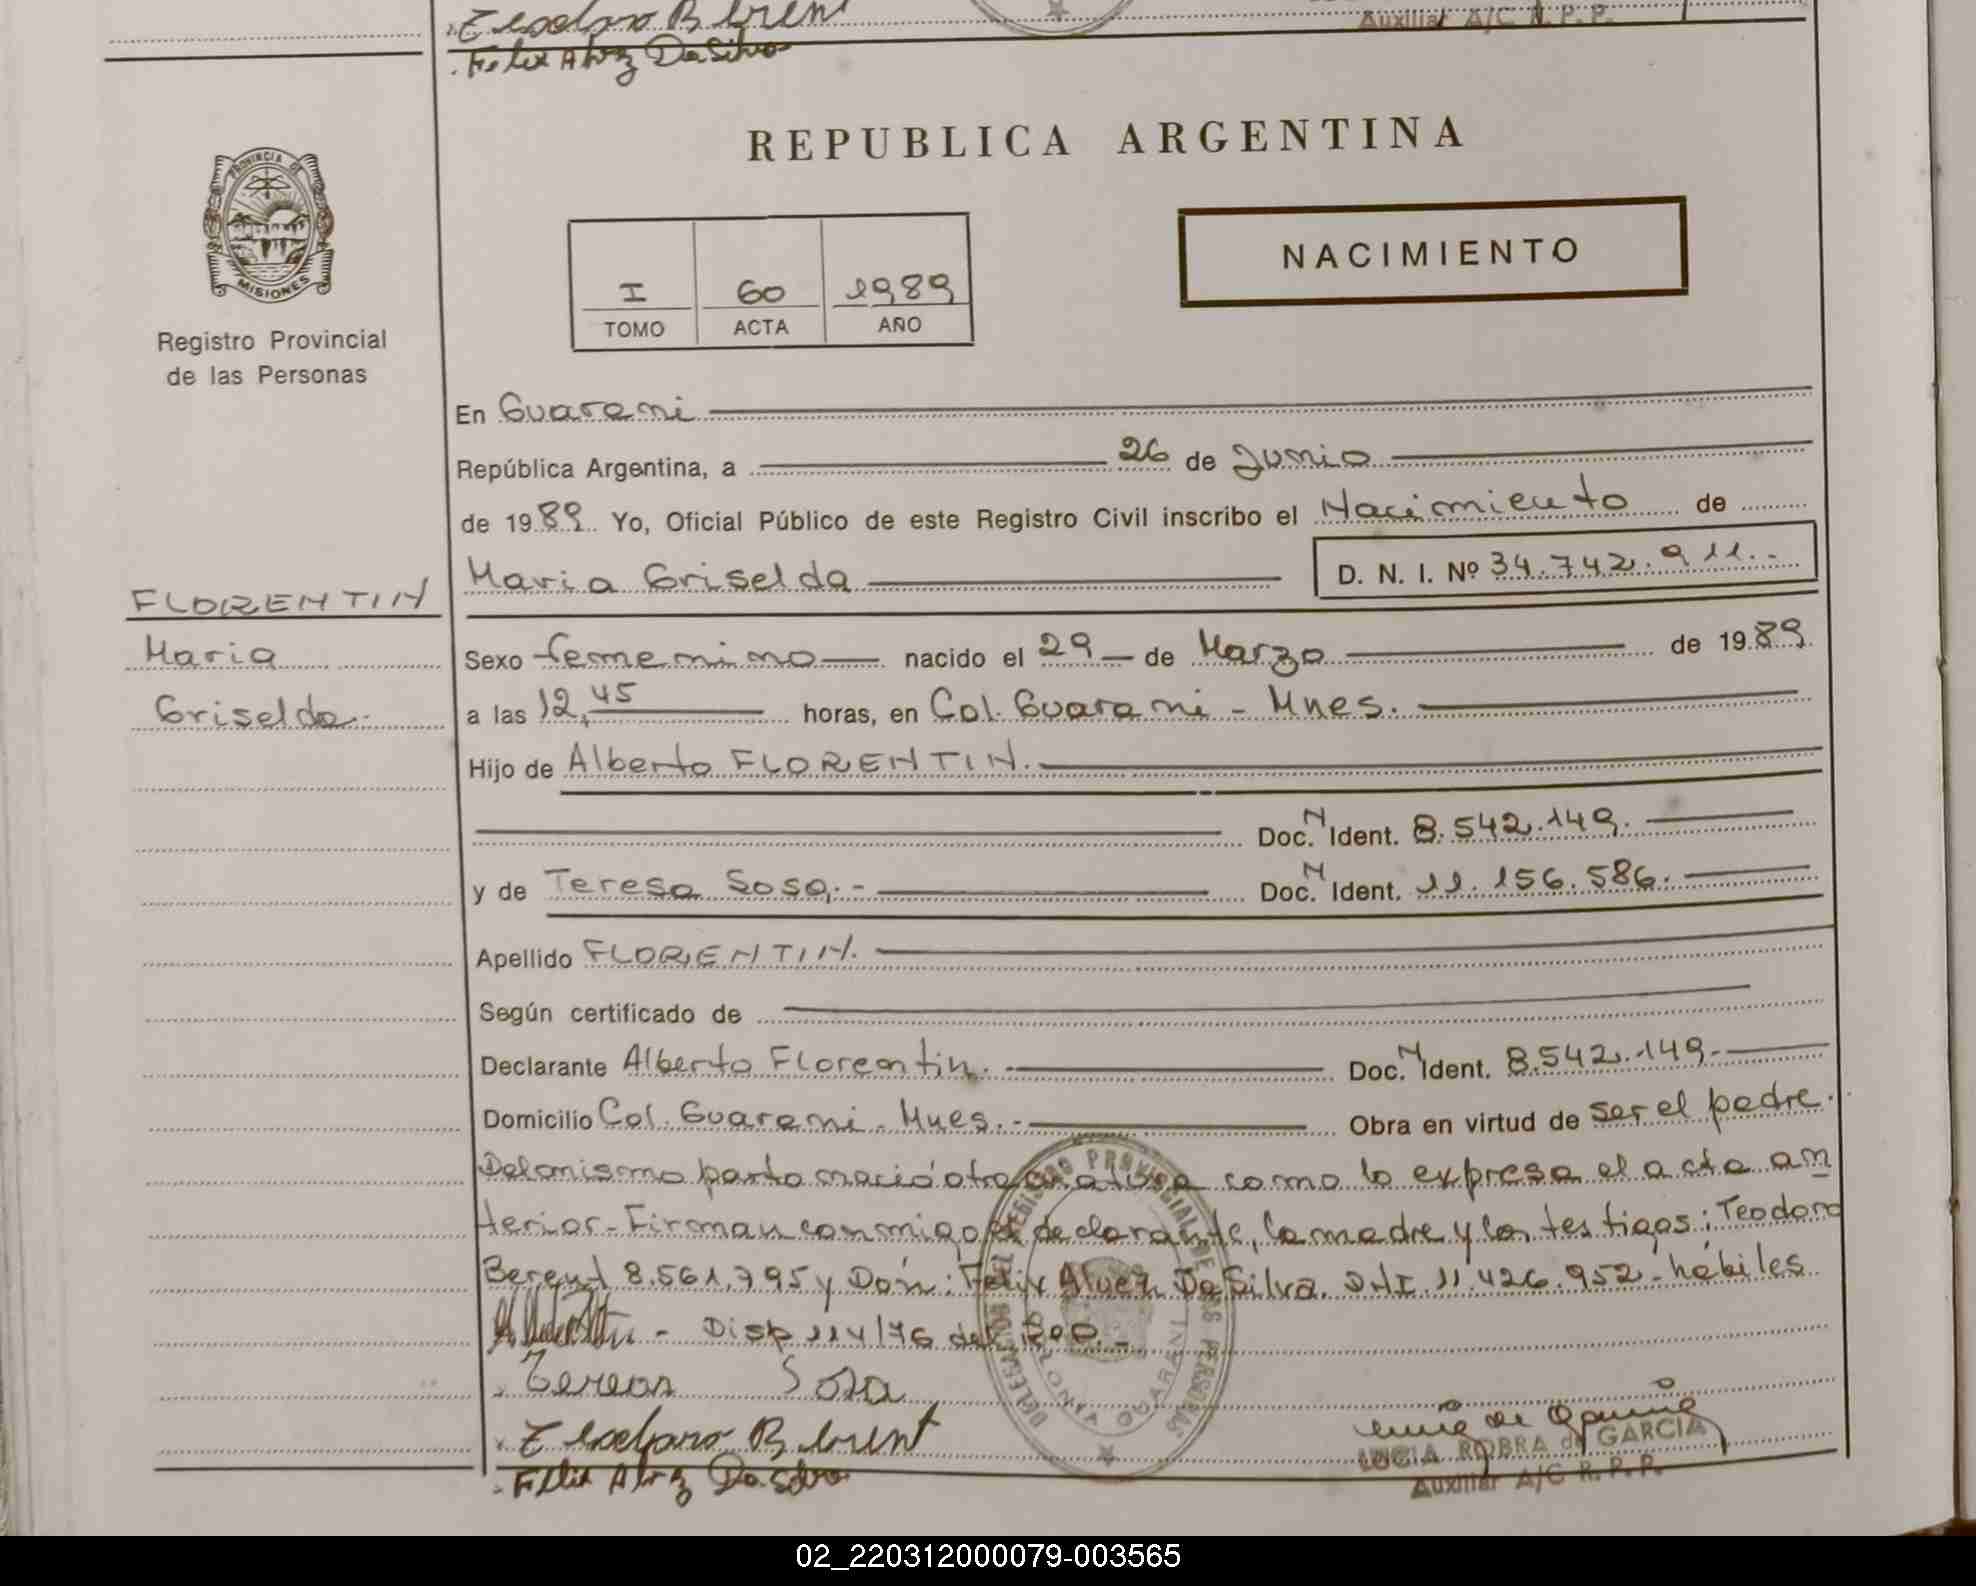 Teodoro Berent
Felix Alvez Da Silva
Auxiliar A/C R. P. P.
REPUBLICA ARGENTINA
PROVINCIA DE
MISIONES
Registro Provincial
de las Personas
NACIMIENTO
I 60 1989
TOMO ACTA AÑO
En Guarani
República Argentina, a 26 de Junio
de 1989 Yo, Oficial Público de este Registro Civil inscribo el Nacimiento de
Maria Griselda D. N. I. Nº 34.742.911.-
FLORENTIN
Maria
Griselda.-
Sexo femenino nacido el 29 de Marzo de 1989.
a las 12,45 horas, en Col. Guarani - Mnes.
Hijo de Alberto FLORENTIN.
Doc. N Ident. 8.542.149.
y de Teresa Sosa.- Doc. N Ident. 11.156.586.
Apellido FLORENTIN.
Según certificado de
Declarante Alberto Florentin. Doc. N Ident. 8.542.149.
Domicilio Col. Guarani - Mnes.- Obra en virtud de ser el padre.
Del mismo parto nació otra criatura como lo expresa el acta an
terior - Firman conmigo el declarante, la madre y los testigos: Teodoro
Berent 8.561.795 y Don: Felix Alvez Da Silva. DNI. 11.426.952 - hábiles
- Disp 114/76 del
Teresa Sosa
Teodoro Berent
Felix Alvez Da Silva
DELEGACION DEL REGISTRO PROVINCIAL DE LAS PERSONAS
COLONIA GUARANI
LUCIA ROBRA de GARCIA
Auxiliar A/C R. P. P.
02_220312000079-003565